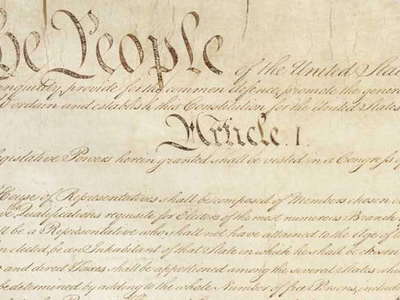 he People of the United Sta
anquility, provide for the common defence, promote the genera
ordain and establish this Constitution for the United States
Article. I.
legislative Powers herein granted shall be vested in a Congress of
House of Representatives shall be composed of Members chosen
Qualifications requisite for Electors of the most numerous Branch
be a Representative who shall not have attained to the Age of
elected, be an Inhabitant of that State in which he shall be chosen
and direct Taxes shall be apportioned among the several States which
be determined by adding to the whole Number of free Persons, includ